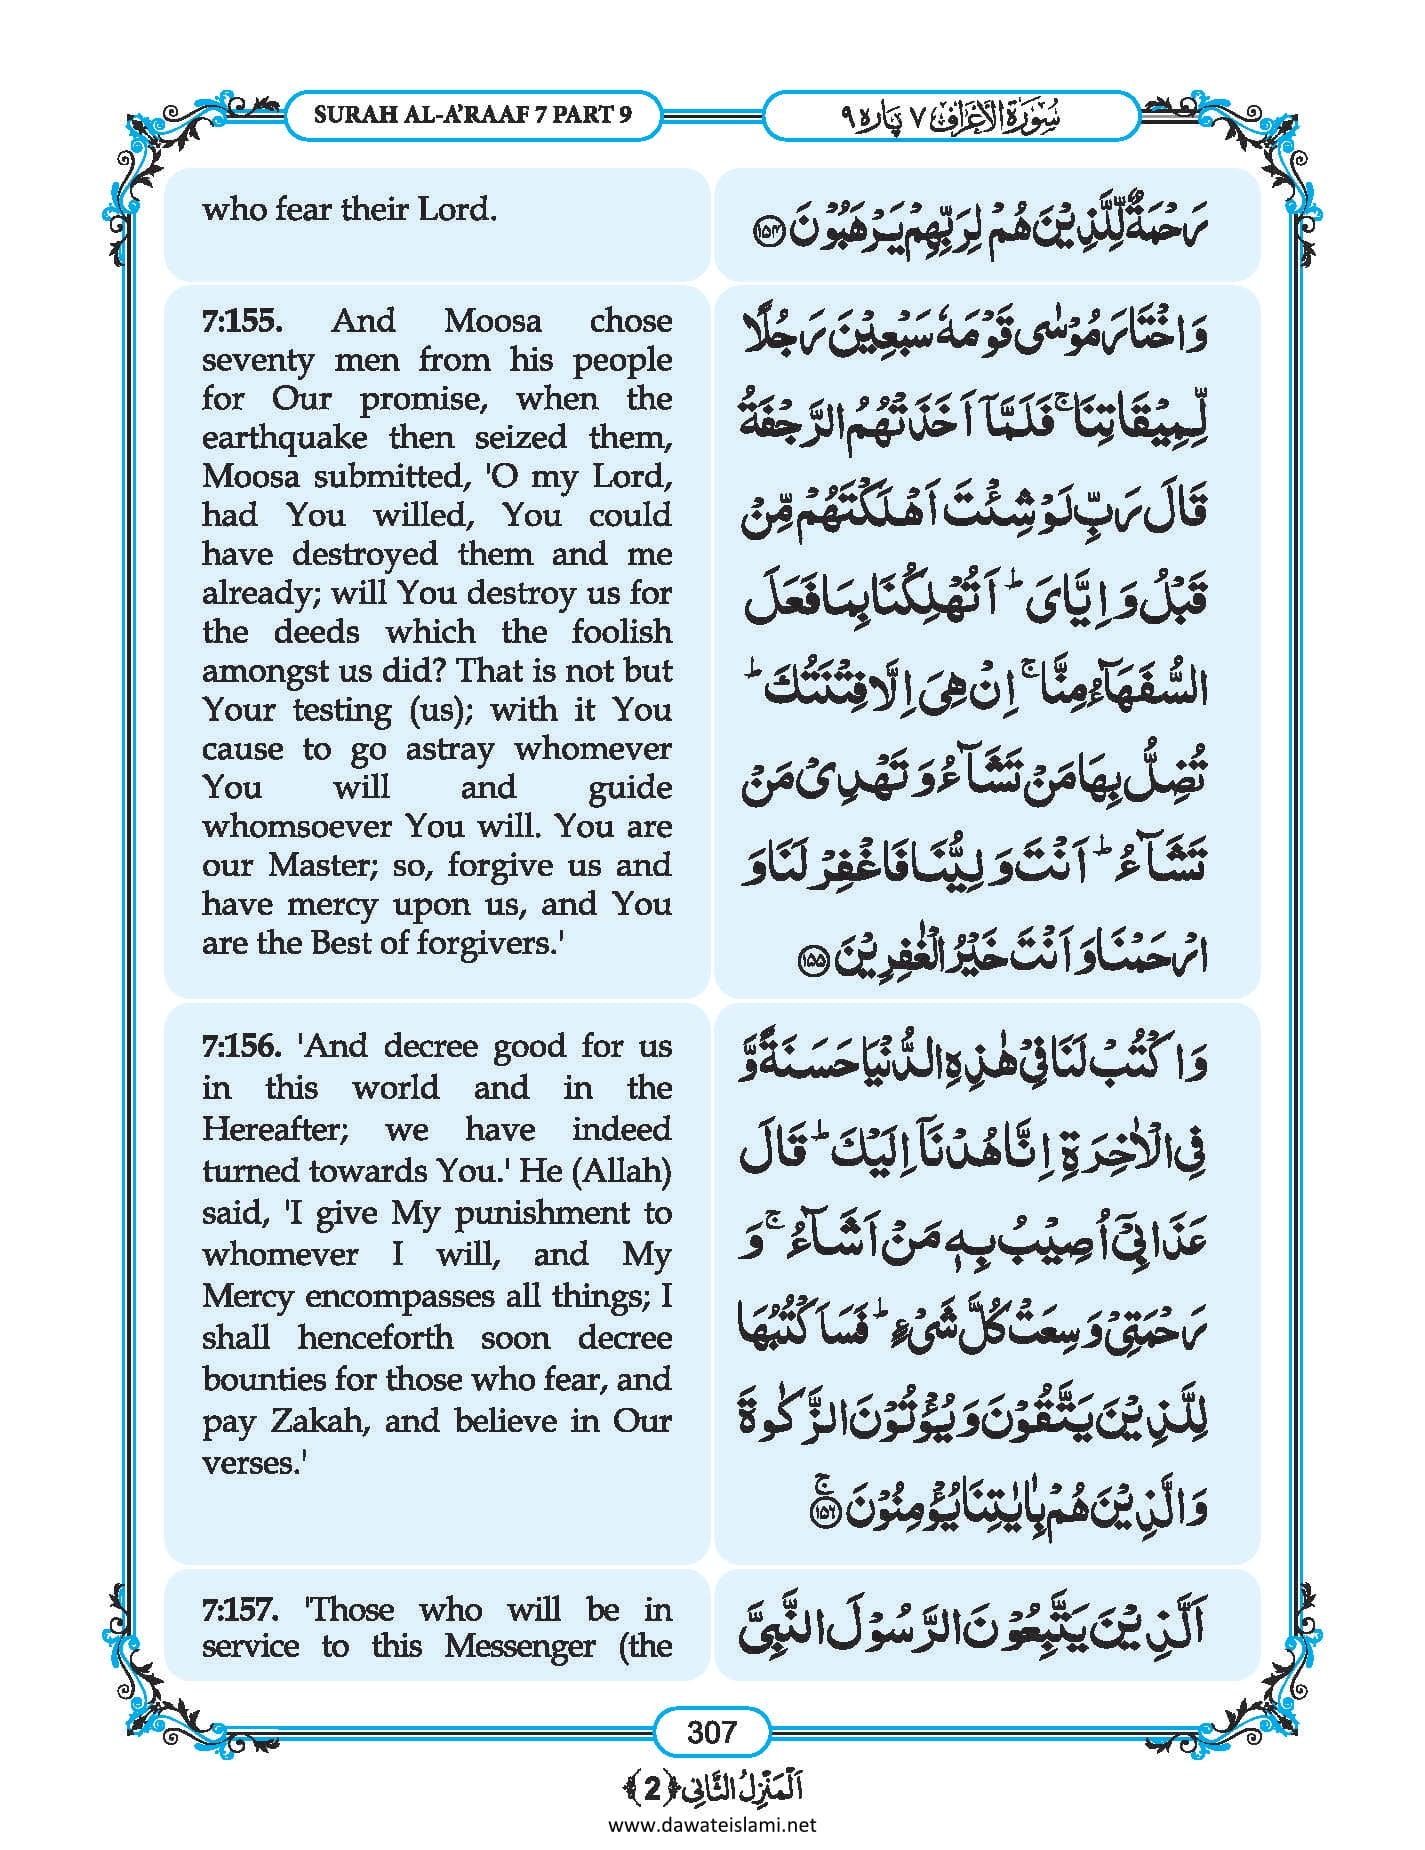 SURAH AL-A'RAAF 7 PART 9
سُوْرَةُ الْاَعْرَاف ٧ پاره ٩
who fear their Lord.
رَحْمَةٌ لِّلَّذِيْنَ هُمْ لِرَبِّهِمْ يَرْهَبُوْنَ ﴿١٥٤﴾
7:155. And Moosa chose
seventy men from his people
for Our promise, when the
earthquake then seized them,
Moosa submitted, 'O my Lord,
had You willed, You could
have destroyed them and me
already; will You destroy us for
the deeds which the foolish
amongst us did? That is not but
Your testing (us); with it You
cause to go astray whomever
You will and guide
whomsoever You will. You are
our Master; so, forgive us and
have mercy upon us, and You
are the Best of forgivers.'
وَاخْتَارَ مُوْسٰى قَوْمَهٗ سَبْعِيْنَ رَجُلًا
لِّمِيْقَاتِنَا ۚ فَلَمَّاۤ اَخَذَتْهُمُ الرَّجْفَةُ
قَالَ رَبِّ لَوْ شِئْتَ اَهْلَكْتَهُمْ مِّنْ
قَبْلُ وَاِيَّايَ ؕ اَتُهْلِكُنَا بِمَا فَعَلَ
السُّفَهَآءُ مِنَّا ۚ اِنْ هِيَ اِلَّا فِتْنَتُكَ ؕ
تُضِلُّ بِهَا مَنْ تَشَآءُ وَتَهْدِيْ مَنْ
تَشَآءُ ؕ اَنْتَ وَلِيُّنَا فَاغْفِرْ لَنَا وَ
ارْحَمْنَا وَاَنْتَ خَيْرُ الْغٰفِرِيْنَ ﴿١٥٥﴾
7:156. 'And decree good for us
in this world and in the
Hereafter; we have indeed
turned towards You.' He (Allah)
said, 'I give My punishment to
whomever I will, and My
Mercy encompasses all things; I
shall henceforth soon decree
bounties for those who fear, and
pay Zakah, and believe in Our
verses.'
وَاكْتُبْ لَنَا فِيْ هٰذِهِ الدُّنْيَا حَسَنَةً وَّ
فِي الْاٰخِرَةِ اِنَّا هُدْنَاۤ اِلَيْكَ ؕ قَالَ
عَذَابِيْۤ اُصِيْبُ بِهٖ مَنْ اَشَآءُ ۚ وَ
رَحْمَتِيْ وَسِعَتْ كُلَّ شَيْءٍ ؕ فَسَاَكْتُبُهَا
لِلَّذِيْنَ يَتَّقُوْنَ وَيُؤْتُوْنَ الزَّكٰوةَ
وَالَّذِيْنَ هُمْ بِاٰيٰتِنَا يُؤْمِنُوْنَ ﴿١٥٦﴾ۚ
7:157. 'Those who will be in
service to this Messenger (the
اَلَّذِيْنَ يَتَّبِعُوْنَ الرَّسُوْلَ النَّبِيَّ
307
اَلْمَنْزِلُ الثَّانِي ﴿2﴾
www.dawateislami.net